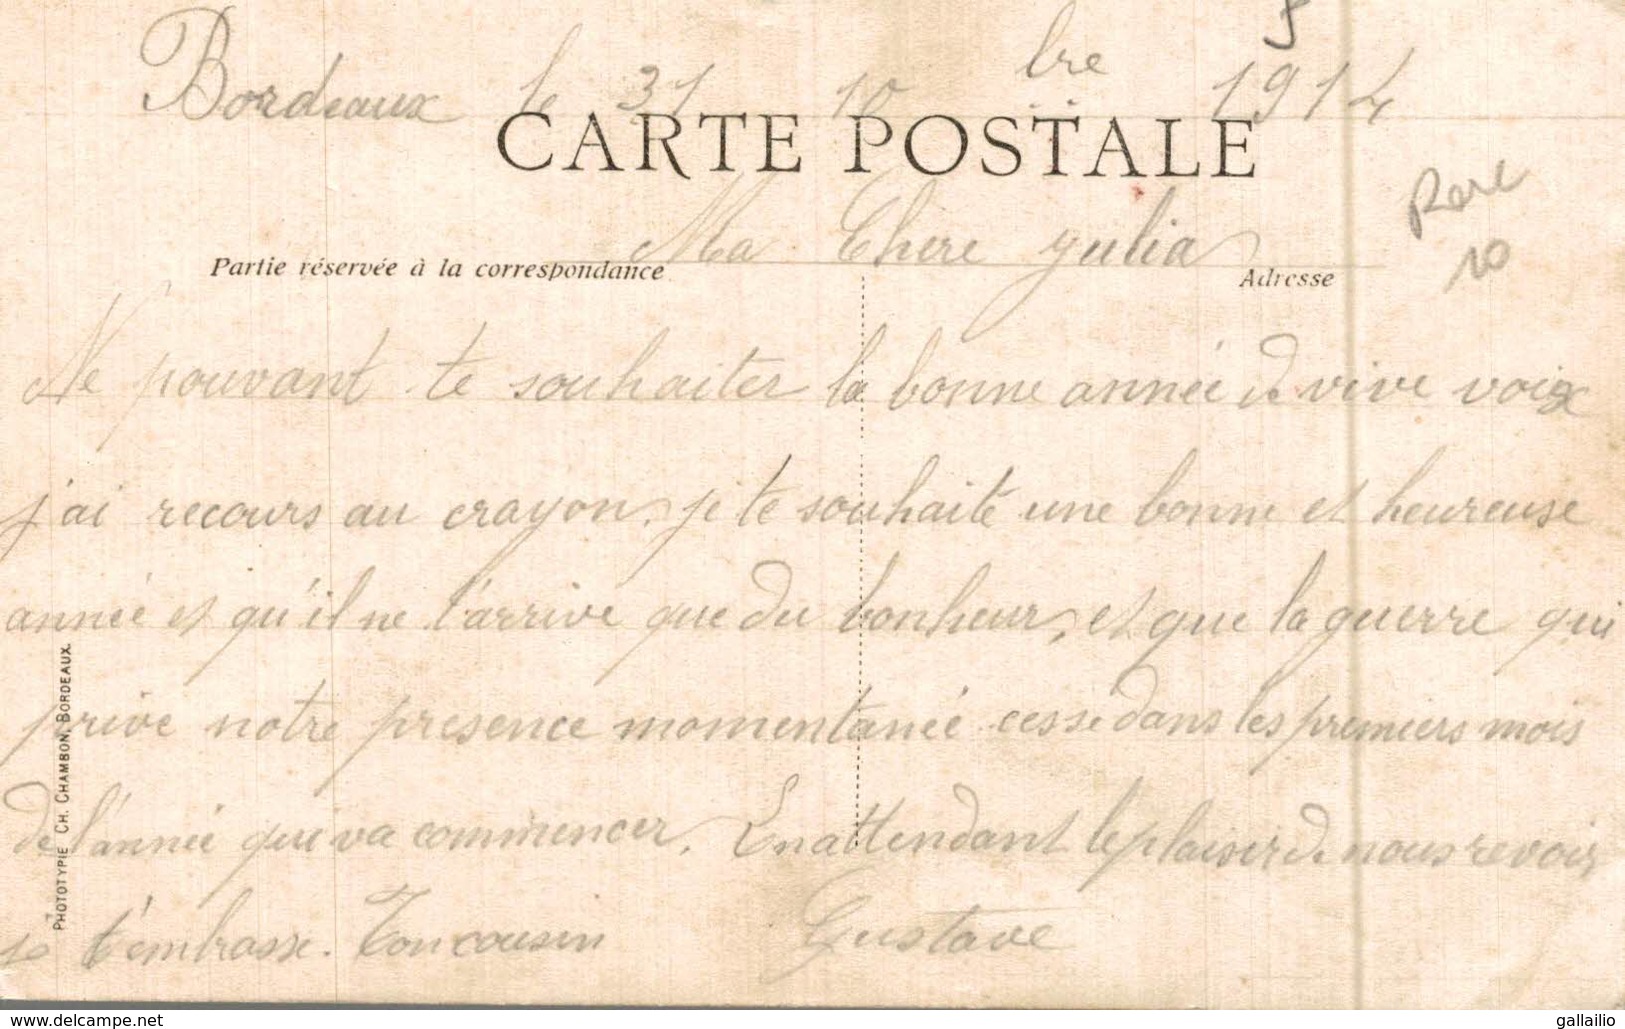 5
Bordeaux le 31 10 bre 1914
CARTE POSTALE
Rare
10
Ma Chere julia
Partie réservée à la correspondance
Adresse
Ne pouvant te souhaiter la bonne année de vive voix
j'ai recours au crayon. je te souhaite une bonne et heureuse
année et qu'il ne t'arrive que du bonheur, et que la guerre qui
prive notre presence momentanée cesse dans les premiers mois
de l'année qui va commencer. En attendant le plaisir de nous revoir
je t'embrasse. Ton cousin Gustave
PHOTOTYPIE CH. CHAMBON, BORDEAUX.
www.delcampe.net
gallailio